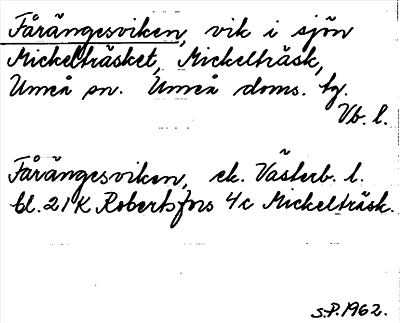 Fårängesviken, vik i sjön
Mickelträsket, Mickelträsk,
Umeå sn. Umeå doms. tg.
Vb. l.
Fårängesviken, ek. Västerb. l.
bl. 21K Robertsfors 4c Mickelträsk.
S.P. 1962.